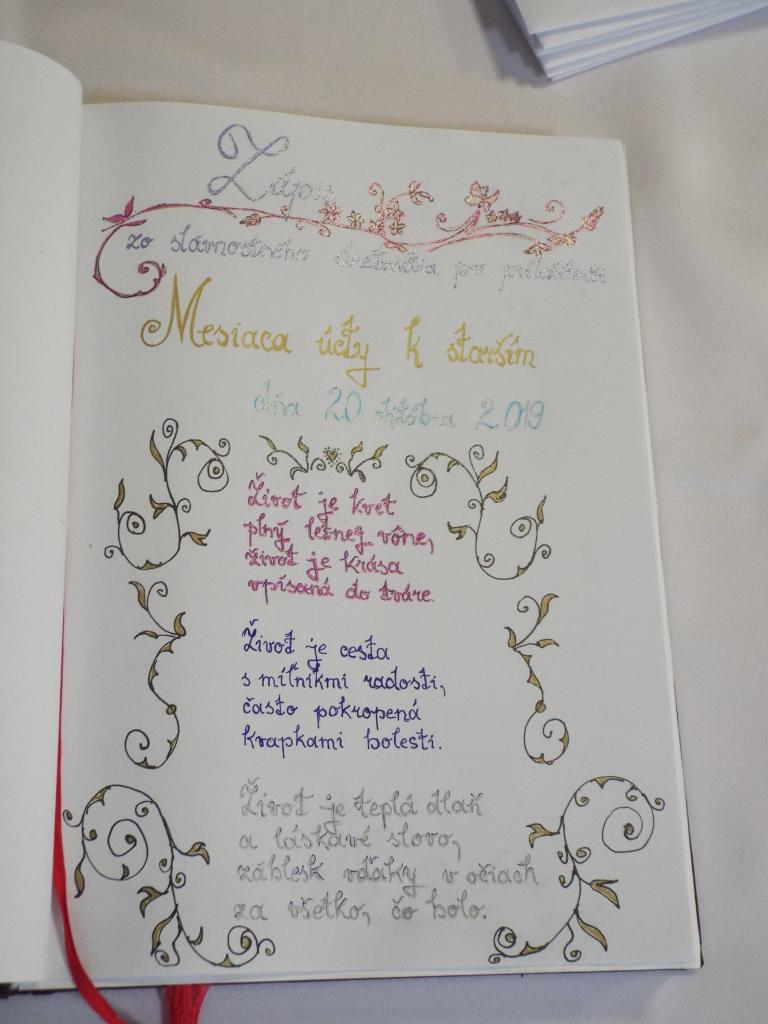 Zápis
zo slávnostného stretnutia pri príležitosti
Mesiaca úcty k starším
dňa 20. októbra 2019
Život je kvet
plný letnej vône,
život je krása
vpísaná do tváre.
Život je cesta
s míľnikmi radosti,
často pokropená
kvapkami bolesti.
Život je teplá dlaň
a láskavé slovo,
záblesk vďaky v očiach
za všetko, čo bolo.